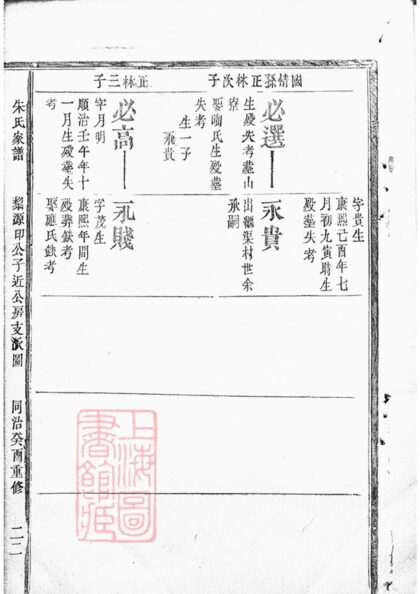 國情孫正林次子
必選
生殁失考塟山
寮
娶陶氏生殁塟
失考
生一子
永貴
字貴生
康熙己酉年七
月初九寅時生
殁塟失考
永貴
出繼葉村世余
承嗣
正林三子
必高
字月明
順治壬午年十
一月生殁塟失
考
永賤
字茂生
康熙年間生
殁葬缺考
娶應氏缺考
朱氏家譜
黎源印公子近公房支派圖
同治癸酉重修
二二
上海圖
書館藏